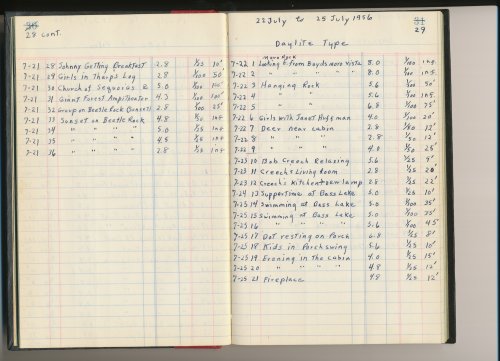 28 cont.
7-21 28 Johnny Getting Breakfast 2.8 1/25 10'
7-21 29 Girls in Tharps Log 2.8 1/100 50
7-21 30 Church of Sequoias @ 5.0 1/100 100'
7-21 31 Grant Forest Ampitheater 4.3 1/100 300'
7-21 32 Group on Beetle Rock (Sunset) 2.8 1/100 25'
7-21 33 Sunset on Beetle Rock 4.8 1/50 inf
7-21 34 " " " " 5.0 1/25 inf
7-21 35 " " " " 4.5 1/25 inf
7-21 36 " " " " 2.8 1/25 inf
22 July to 25 July 1956
29
Daylite Type
Moro Rock
7-22 1 Looking @ from Boyds moro vista 8.0 1/100 inf.
7-22 2 " " " " " 8.0 1/100 inf.
7-22 3 Hanging Rock 5.6 1/100 50'
7-22 4 " " 5.6 1/100 inf.
7-22 5 " " 6.8 1/100 75'
7-22 6 Girls with Janet Huffman 4.0 1/100 20'
7-22 7 Deer near cabin 2.8 13'
7-22 8 " " " 2.8 1/50 12'
7-22 9 " " " 4.0 1/50 25'
7-25 10 Bob Creech Relaxing 5.6 1/25 9'
7-25 11 Creechs Living Room 2.8 1/25 20'
7-23 12 Creechs Kitchen + new lamp 2.8 1/25 22'
7-24 13 Suppertime at Bass Lake 5.0 1/50 10'
7-25 14 Swimming at Bass Lake 5.0 1/100 35'
7-25 15 Swimming at Bass Lake 5.0 1/100 35'
7-25 16 " " " " 5.6 1/100 45'
7-25 17 Dot resting on Porch 6.8 1/25 8'
7-25 18 Kids in Porch swing 5.6 1/25 10'
7-25 19 Evening in the cabin 4.0 1/25 15'
7-25 20 " " " " 4.8 1/25 12'
7-25 21 Fireplace 4.8 1/25 12'